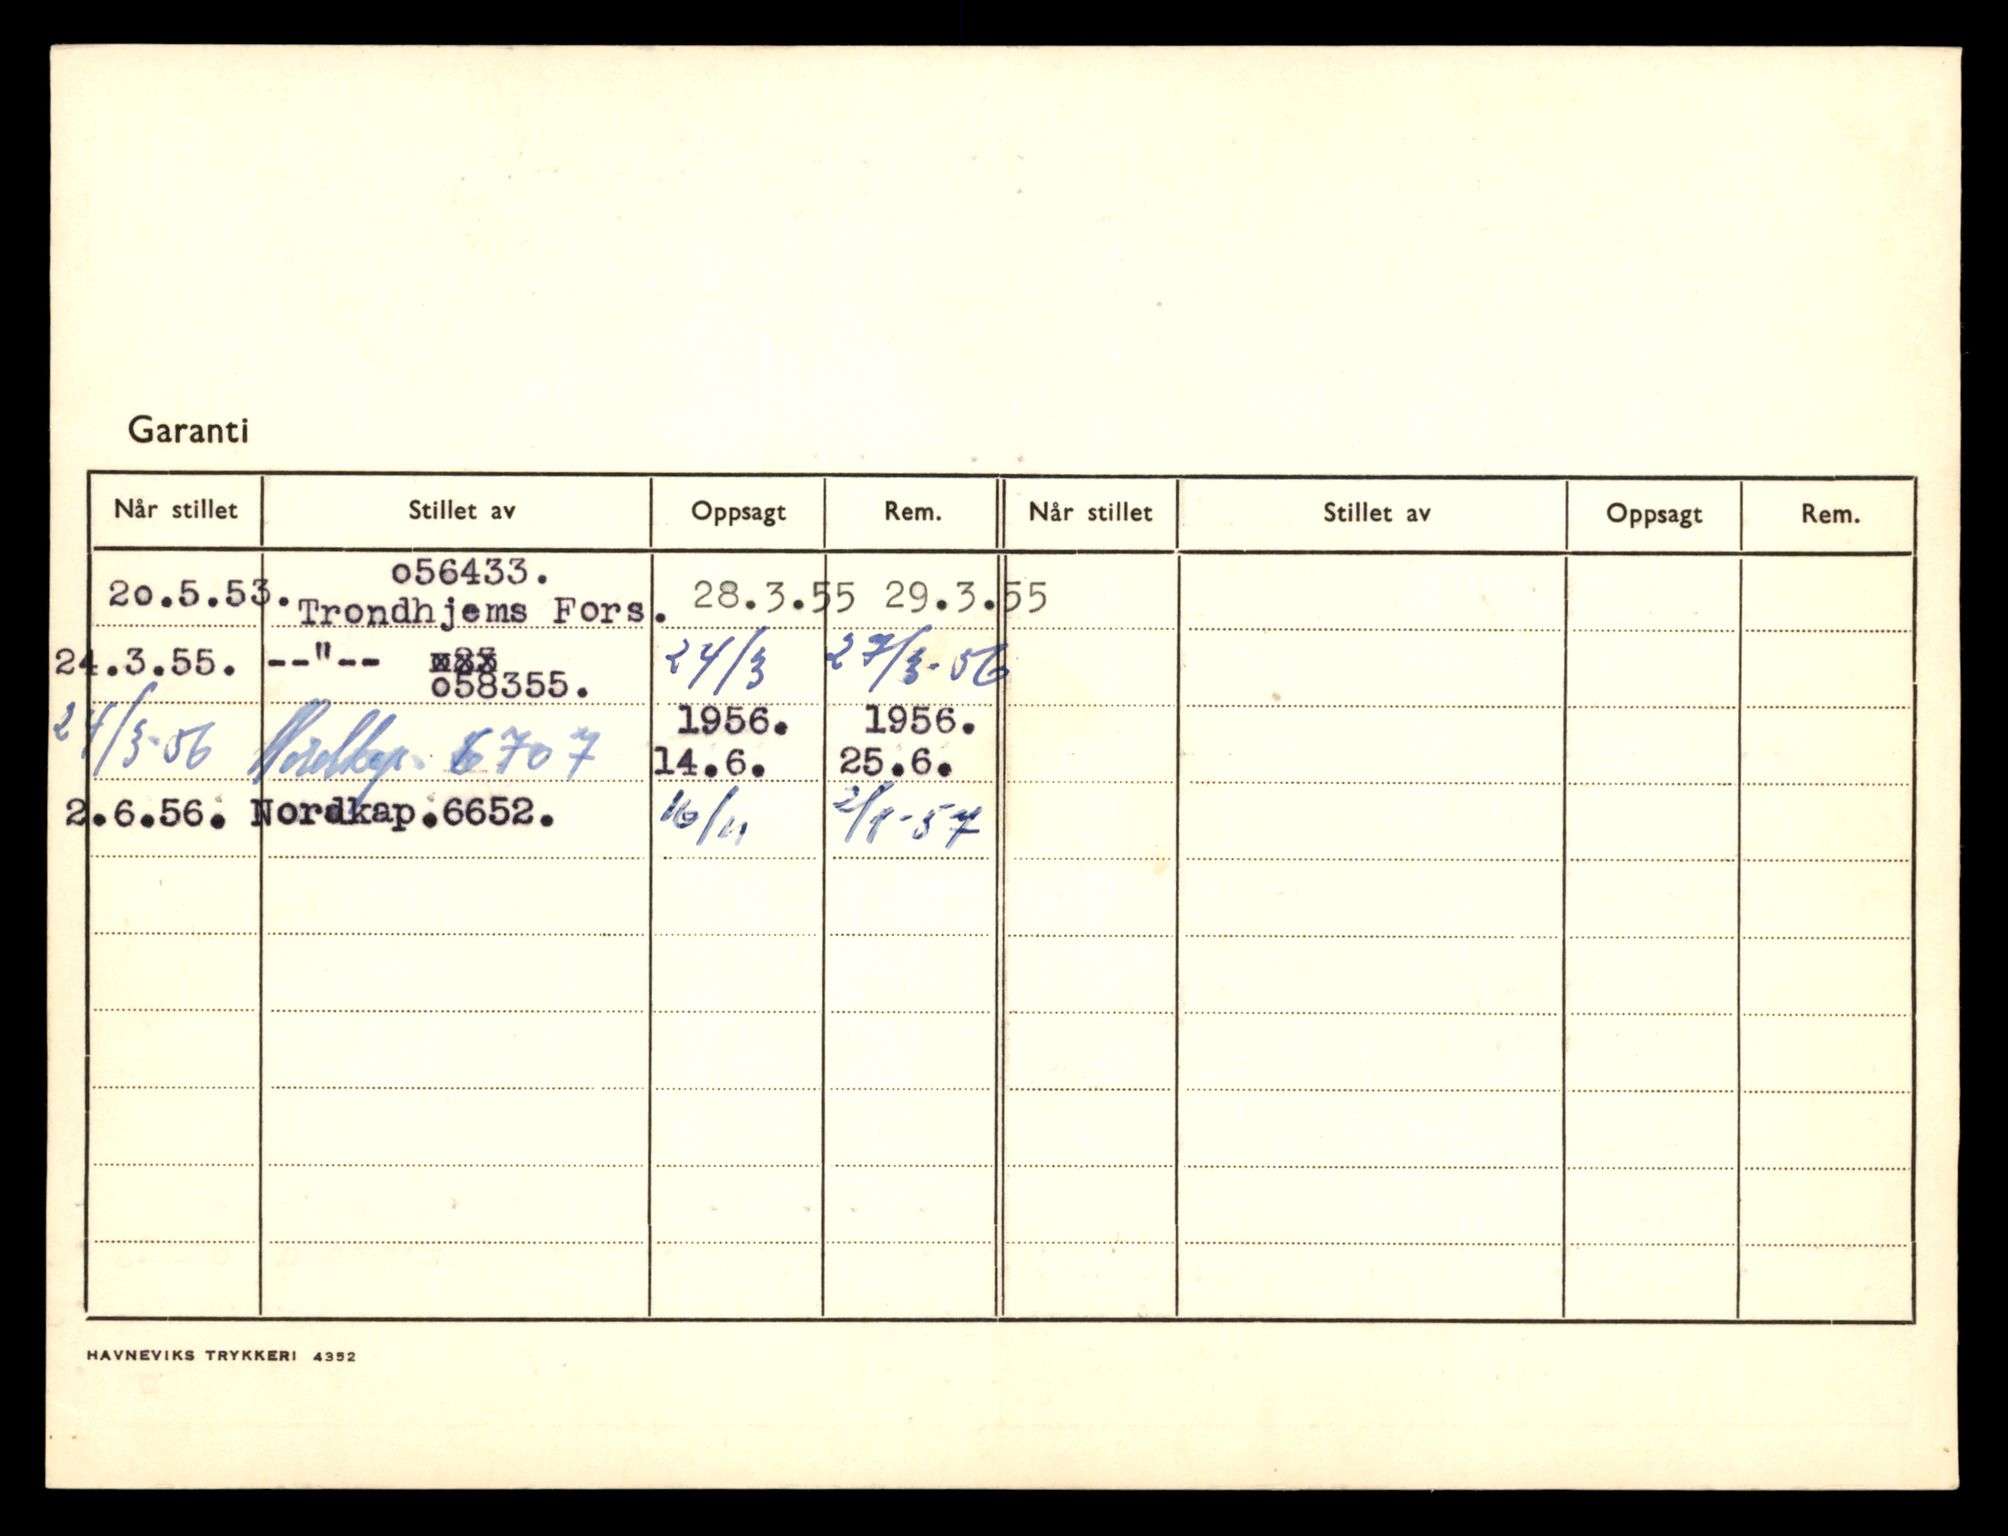 Garanti
Når stillet Stillet av Oppsagt Rem. Når stillet Stillet av Oppsagt Rem.
o56433.
2o.5.53. Trondhjems Fors. 28.3.55 29.3.55
24.3.55. --"-- 24/3 27/3-56
o58355.
1956. 1956.
24/3-56 Nordkap. 6707 14.6. 25.6.
2.6.56. Nordkap.6652. 16/11 2/1-57
HAVNEVIKS TRYKKERI 4352